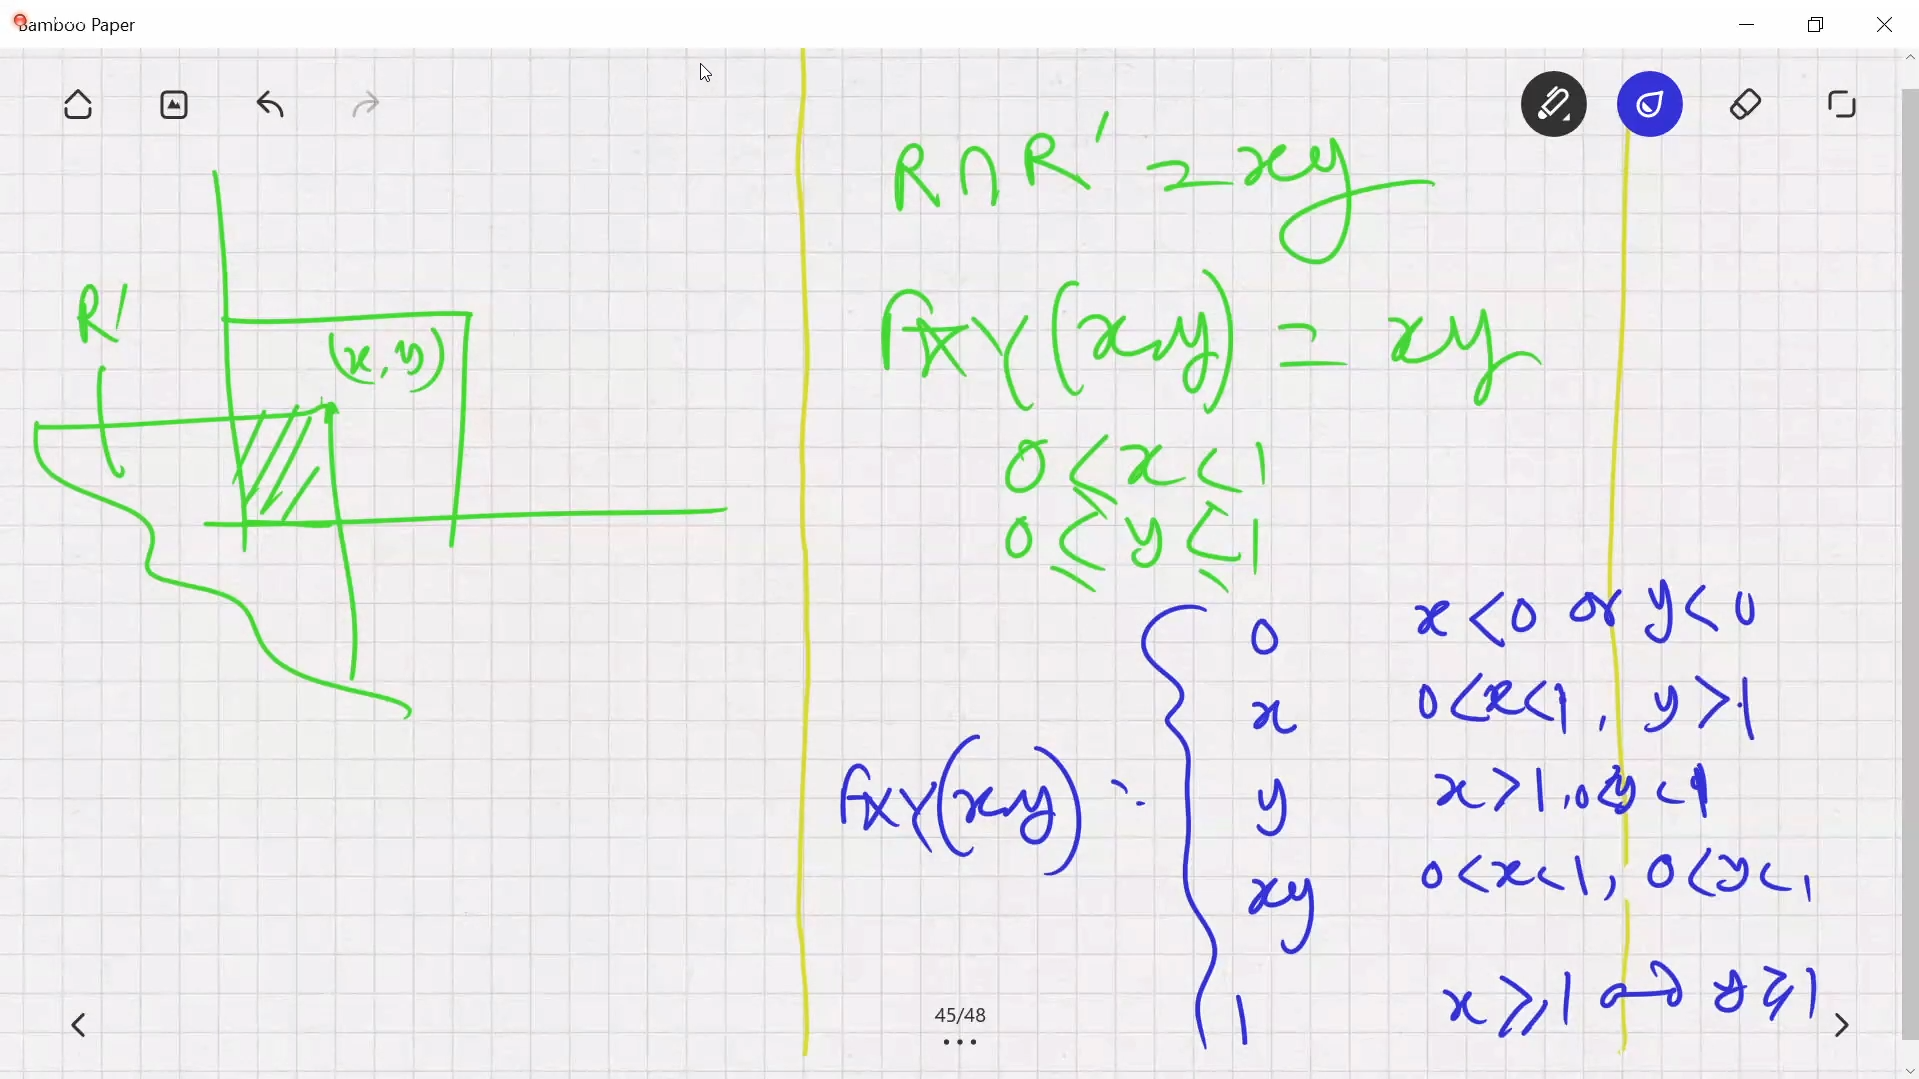 Bamboo Paper
R ∩ R' = xy
R'
(x, y)
FXY(x,y) = xy
0 < x < 1
0 ≤ y ≤ 1
0 x < 0 or y < 0
x 0 < x < 1 , y > 1
FXY(x,y) = y x > 1 , 0 < y < 1
xy 0 < x < 1 , 0 < y < 1
1 x ≥ 1 and y ≥ 1
45/48